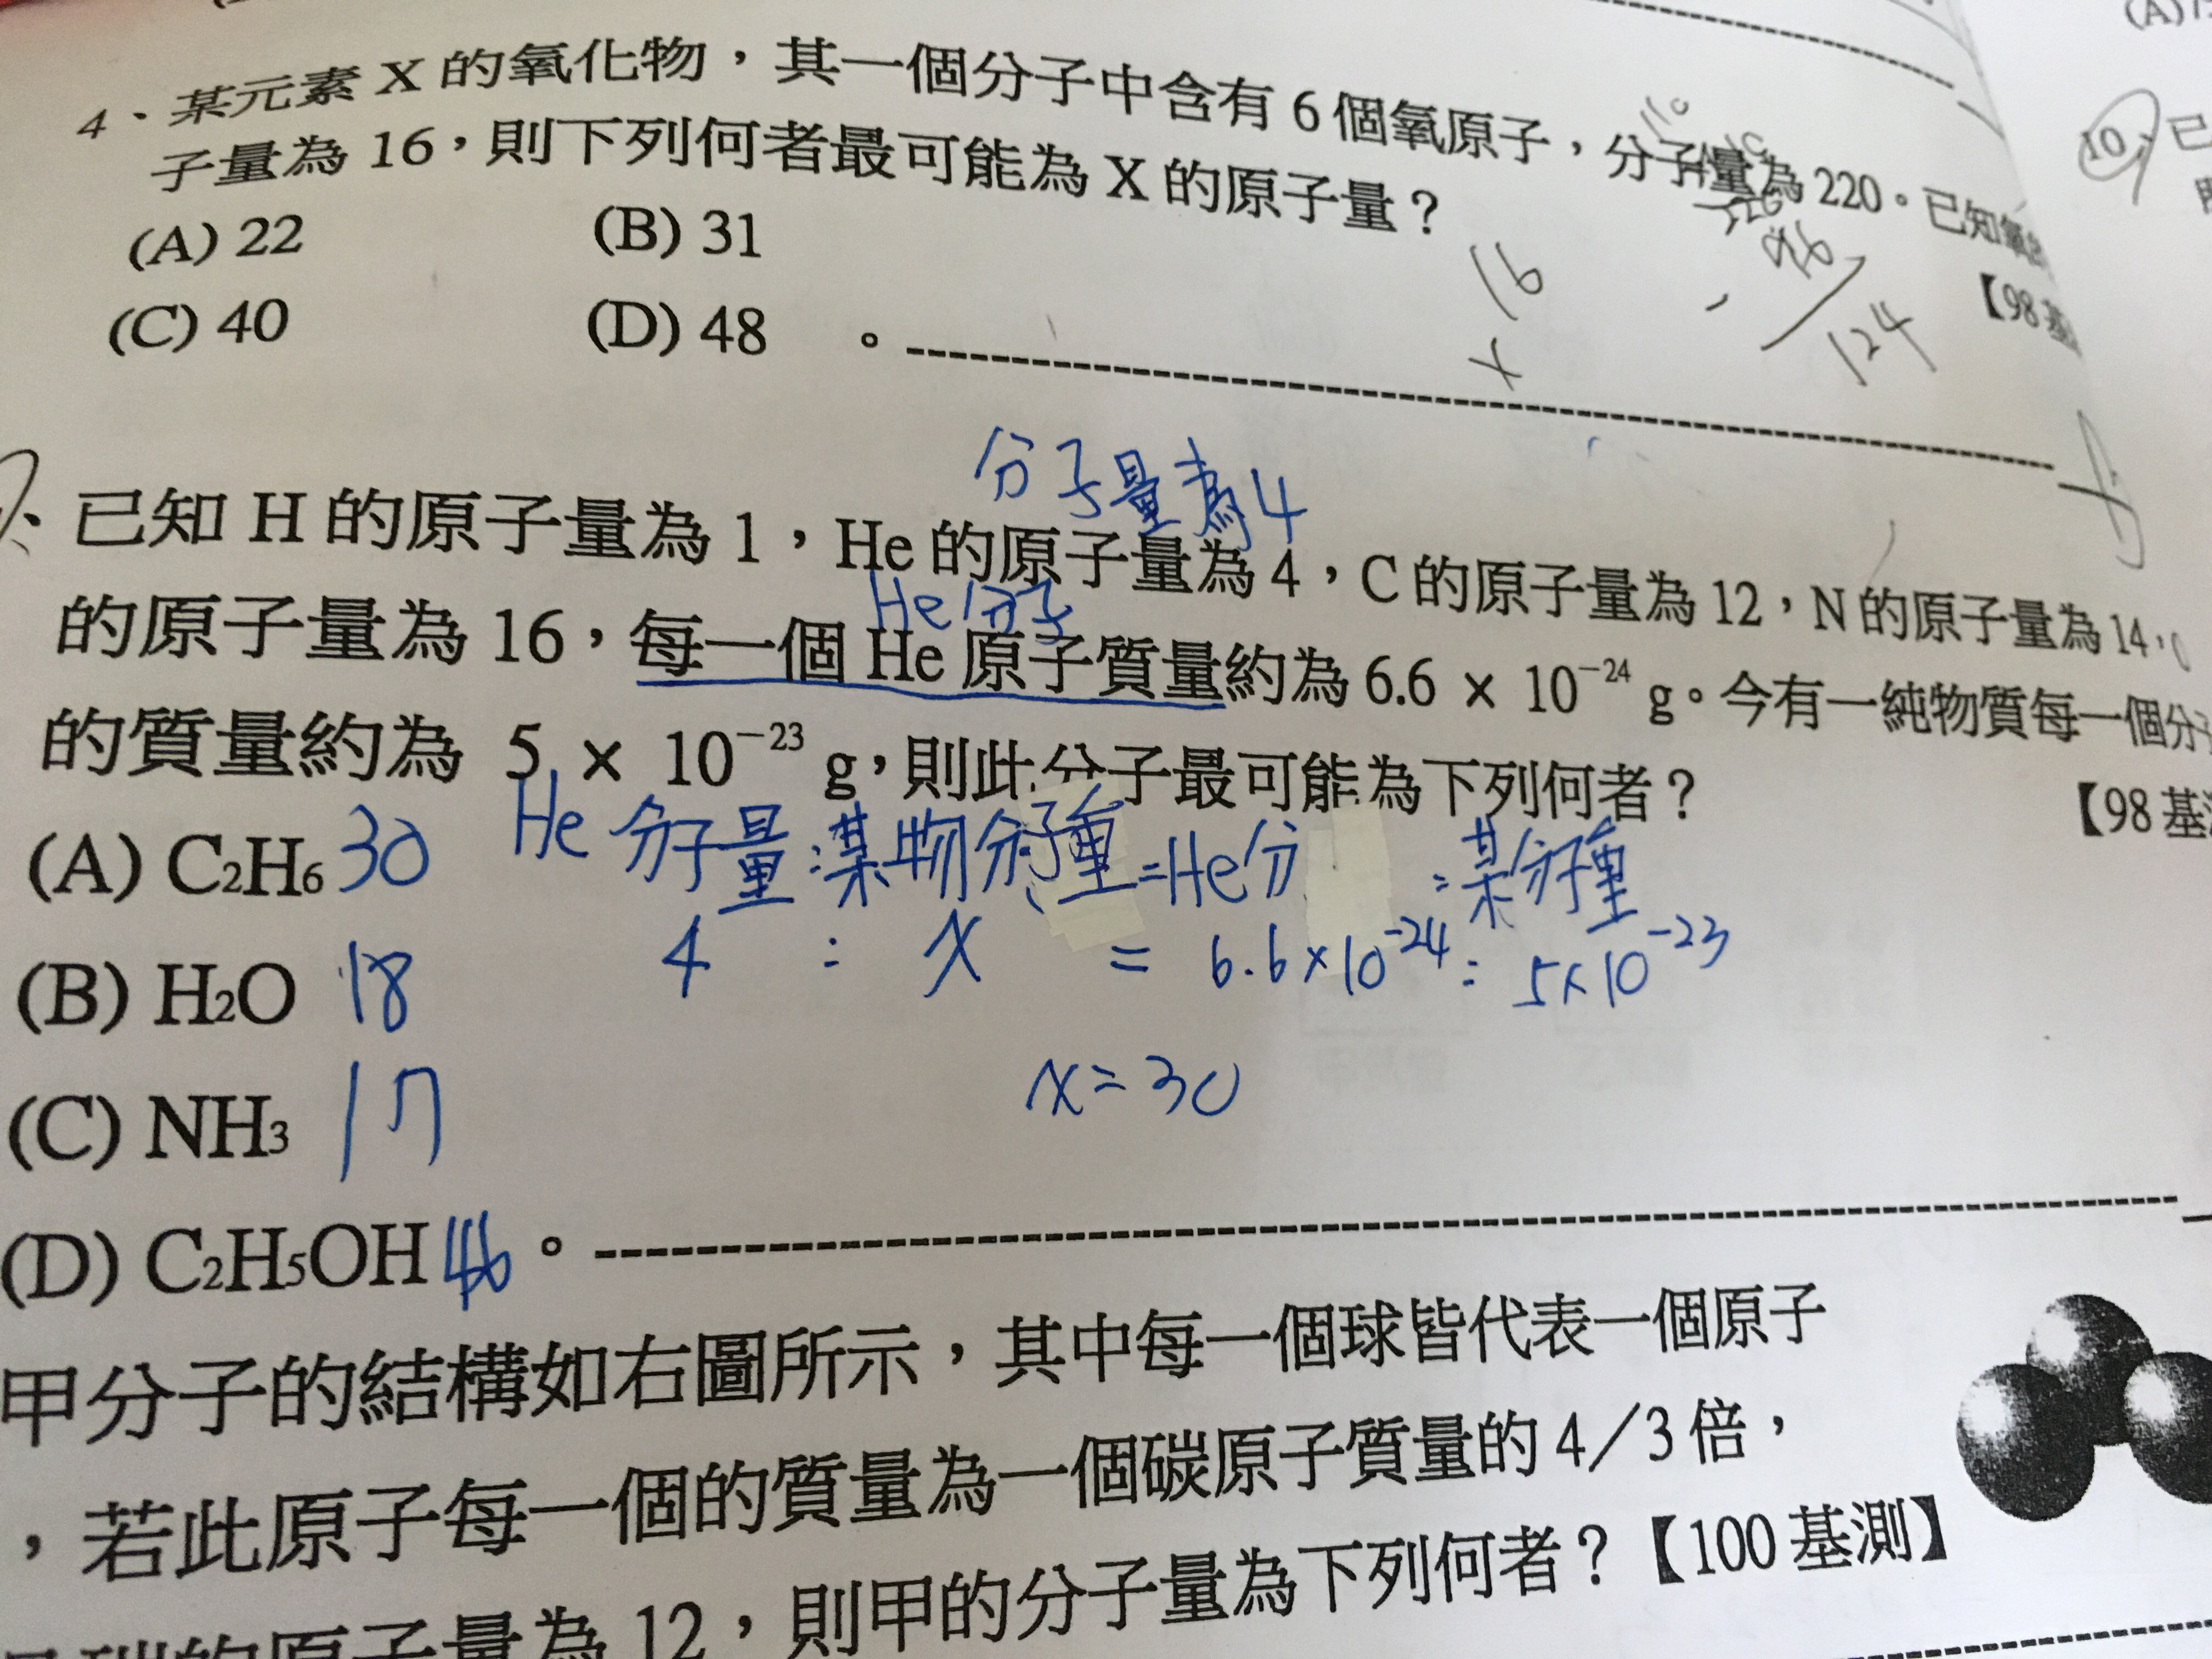 4、某元素 X 的氧化物，其一個分子中含有 6 個氧原子，分子量為 220。已知氧
子量為 16，則下列何者最可能為 X 的原子量？
【98 基
(A) 22 (B) 31
(C) 40 (D) 48 。
16
×
96
124
分子量為4
、已知 H 的原子量為 1，He 的原子量為 4，C 的原子量為 12，N 的原子量為 14，O
He分子
的原子量為 16，每一個 He 原子質量約為 6.6 × 10⁻²⁴ g。今有一純物質每一個分
的質量約為 5 × 10⁻²³ g，則此分子最可能為下列何者？
【98 基
He 分子量:某物分子重=He分 :某分子重
4 : x = 6.6×10⁻²⁴ : 5×10⁻²³
x=30
(A) C₂H₆ 30
(B) H₂O 18
(C) NH₃ 17
(D) C₂H₅OH 46 。
甲分子的結構如右圖所示，其中每一個球皆代表一個原子
，若此原子每一個的質量為一個碳原子質量的 4／3 倍，
的原子量為 12，則甲的分子量為下列何者？【100 基測】
(A)
10、已